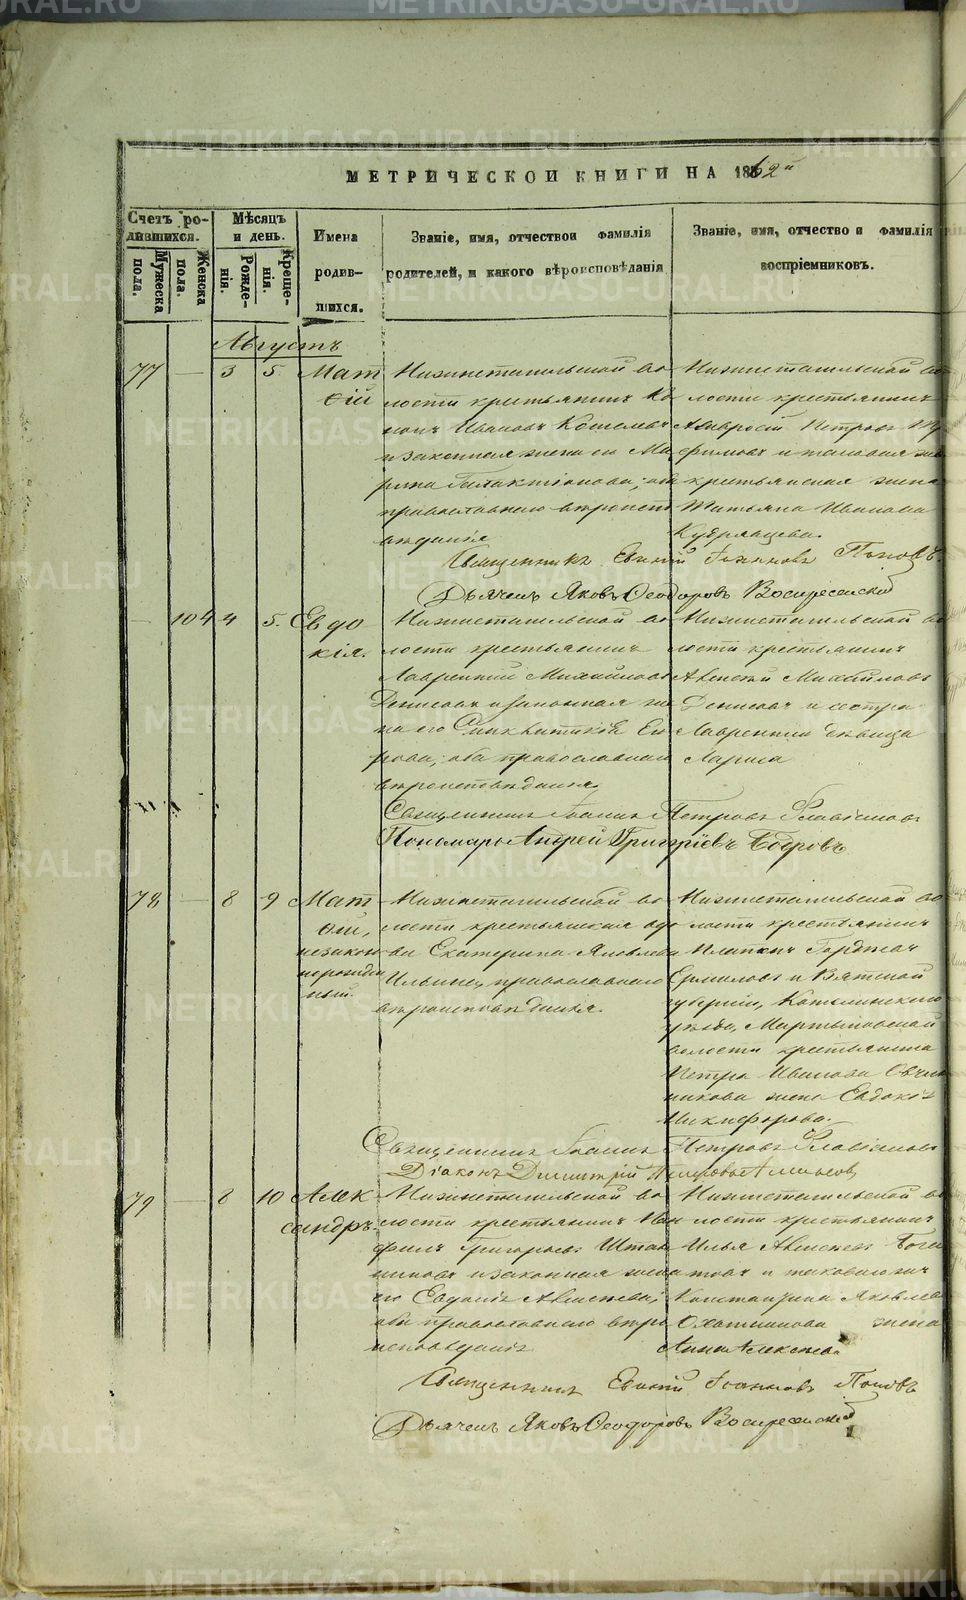 МЕТРИЧЕСКОЙ КНИГИ НА 1862й
Счетъ ро-
дившихся.
Мужеска
пола.
Женска
пола.
Мѣсяцъ
и день.
Рожде-
нія.
Креще-
нія.
Имена
родив-
шихся.
Званіе, имя, отчествои фамилія
родителей, и какого вѣроисповѣданія
Званіе, имя, отчество и фамилія
воспріемниковъ.
Августъ
77 — 3 5.
Мат
ѳій
Нижнетагильской во
лости крестьянинъ
Ивановъ Кошелевъ
и законная жена его Ма
рина Галактіонова; оба
православнаго вѣроиспо
вѣданія
Нижнетагильской во
лости крестьянинъ
Амвросій Петровъ
крестьянская жена
Татьяна Иванова
Кудрявцева.
Священникъ Евѳимій Іоанновъ Поповъ.
Дьячекъ Яковъ Ѳеодоровъ Воскресенскій
— 104 4 5.
Евдо
кія.
Нижнетагильской во
лости крестьянинъ
Лаврентій Михайловъ
Денисовъ и законная же
на его Синклитикія Ег
рова, оба православнаго
вѣроисповѣданія.
Нижнетагильской во
лости крестьянинъ
Алексѣй Михайловъ
Денисовъ и сестра
Лаврентія дѣвица
Лариса
Священникъ Іоаннъ Петровъ Флавіановъ
Пономарь Андрей Григоріевъ Бобровъ
78 — 8 9
Мат
ѳій,
незакон
норожден
ный.
Нижнетагильской во
лости крестьянская вдо
ва Екатерина Яковлева
Ильина, православнаго
вѣроисповѣданія.
Нижнетагильской во
лости крестьянинъ
Платонъ Гордѣевъ
Ермиловъ и Вятской
губерніи, Котельнического
уѣзда, Мартыновской
волости крестьянина
Петра Иванова Овчин
никова жена Евдокія
Никифорова.
Священникъ Іоаннъ Петровъ Флавіановъ
Діаконъ Димитрій
79 — 8 10
Алек
сандръ.
Нижнетагильской во
лости крестьянинъ
Григорьевъ
и законная жена
его Евдокія Алексѣева;
оба православнаго вѣро
исповѣданія
Нижнетагильской во
лости крестьянинъ
Илья Алексѣевъ
Константина Яковлева
жена
Анна Алексѣева
Священникъ Евѳимій Іоанновъ Поповъ
Дьячекъ Яковъ Ѳеодоровъ Воскресенскій
METRIKI.GASO-URAL.RU